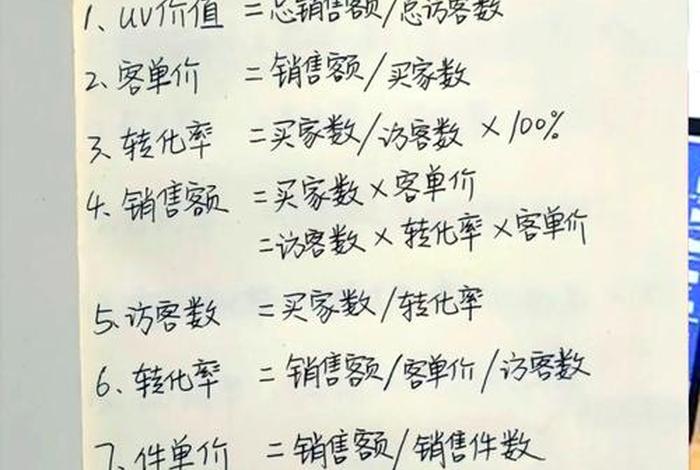 1、UV价值 =总销售额/总访客数
2、客单价 =销售额/买家数
3、转化率 =买家数/访客数 ×100%
4、销售额 =买家数×客单价
=访客数×转化率×客单价
5、访客数 =买家数/转化率
6、转化率 =销售额/客单价/访客数
7、件单价 =销售额/销售件数